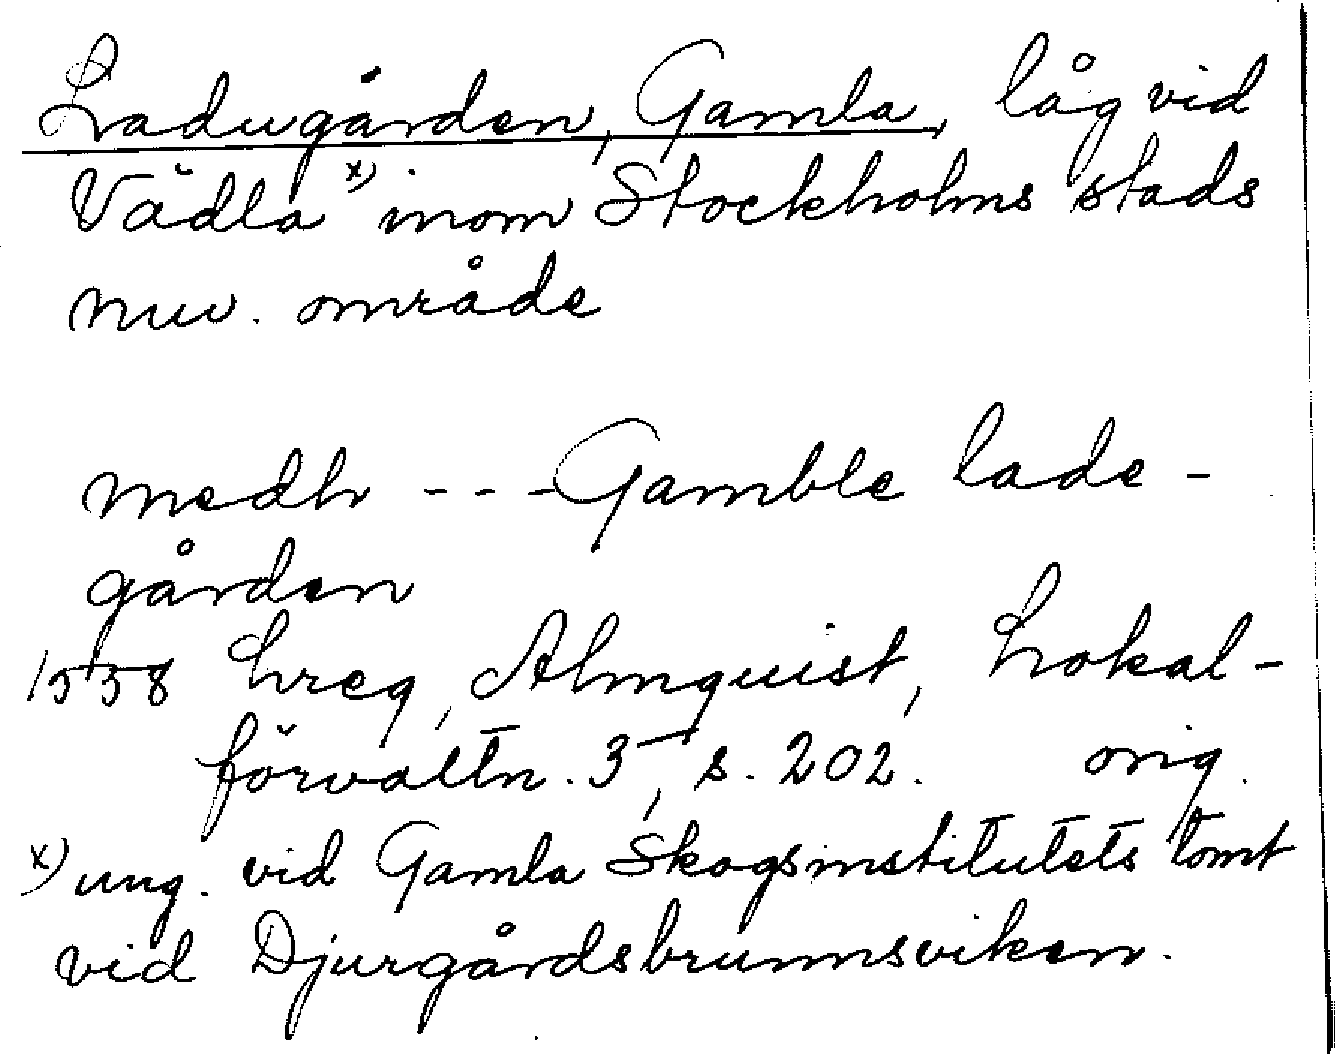 Ladugården, Gamla, låg vid
Vädla x) inom Stockholms stads
nuv. område
medh - - - Gamble lade -
gården
1558 hreg, Almquist, Lokal-
förvaltn. 3, s. 202. orig.
x) ung. vid Gamla Skogsinstitutets tomt
vid Djurgårdsbrunnsviken.